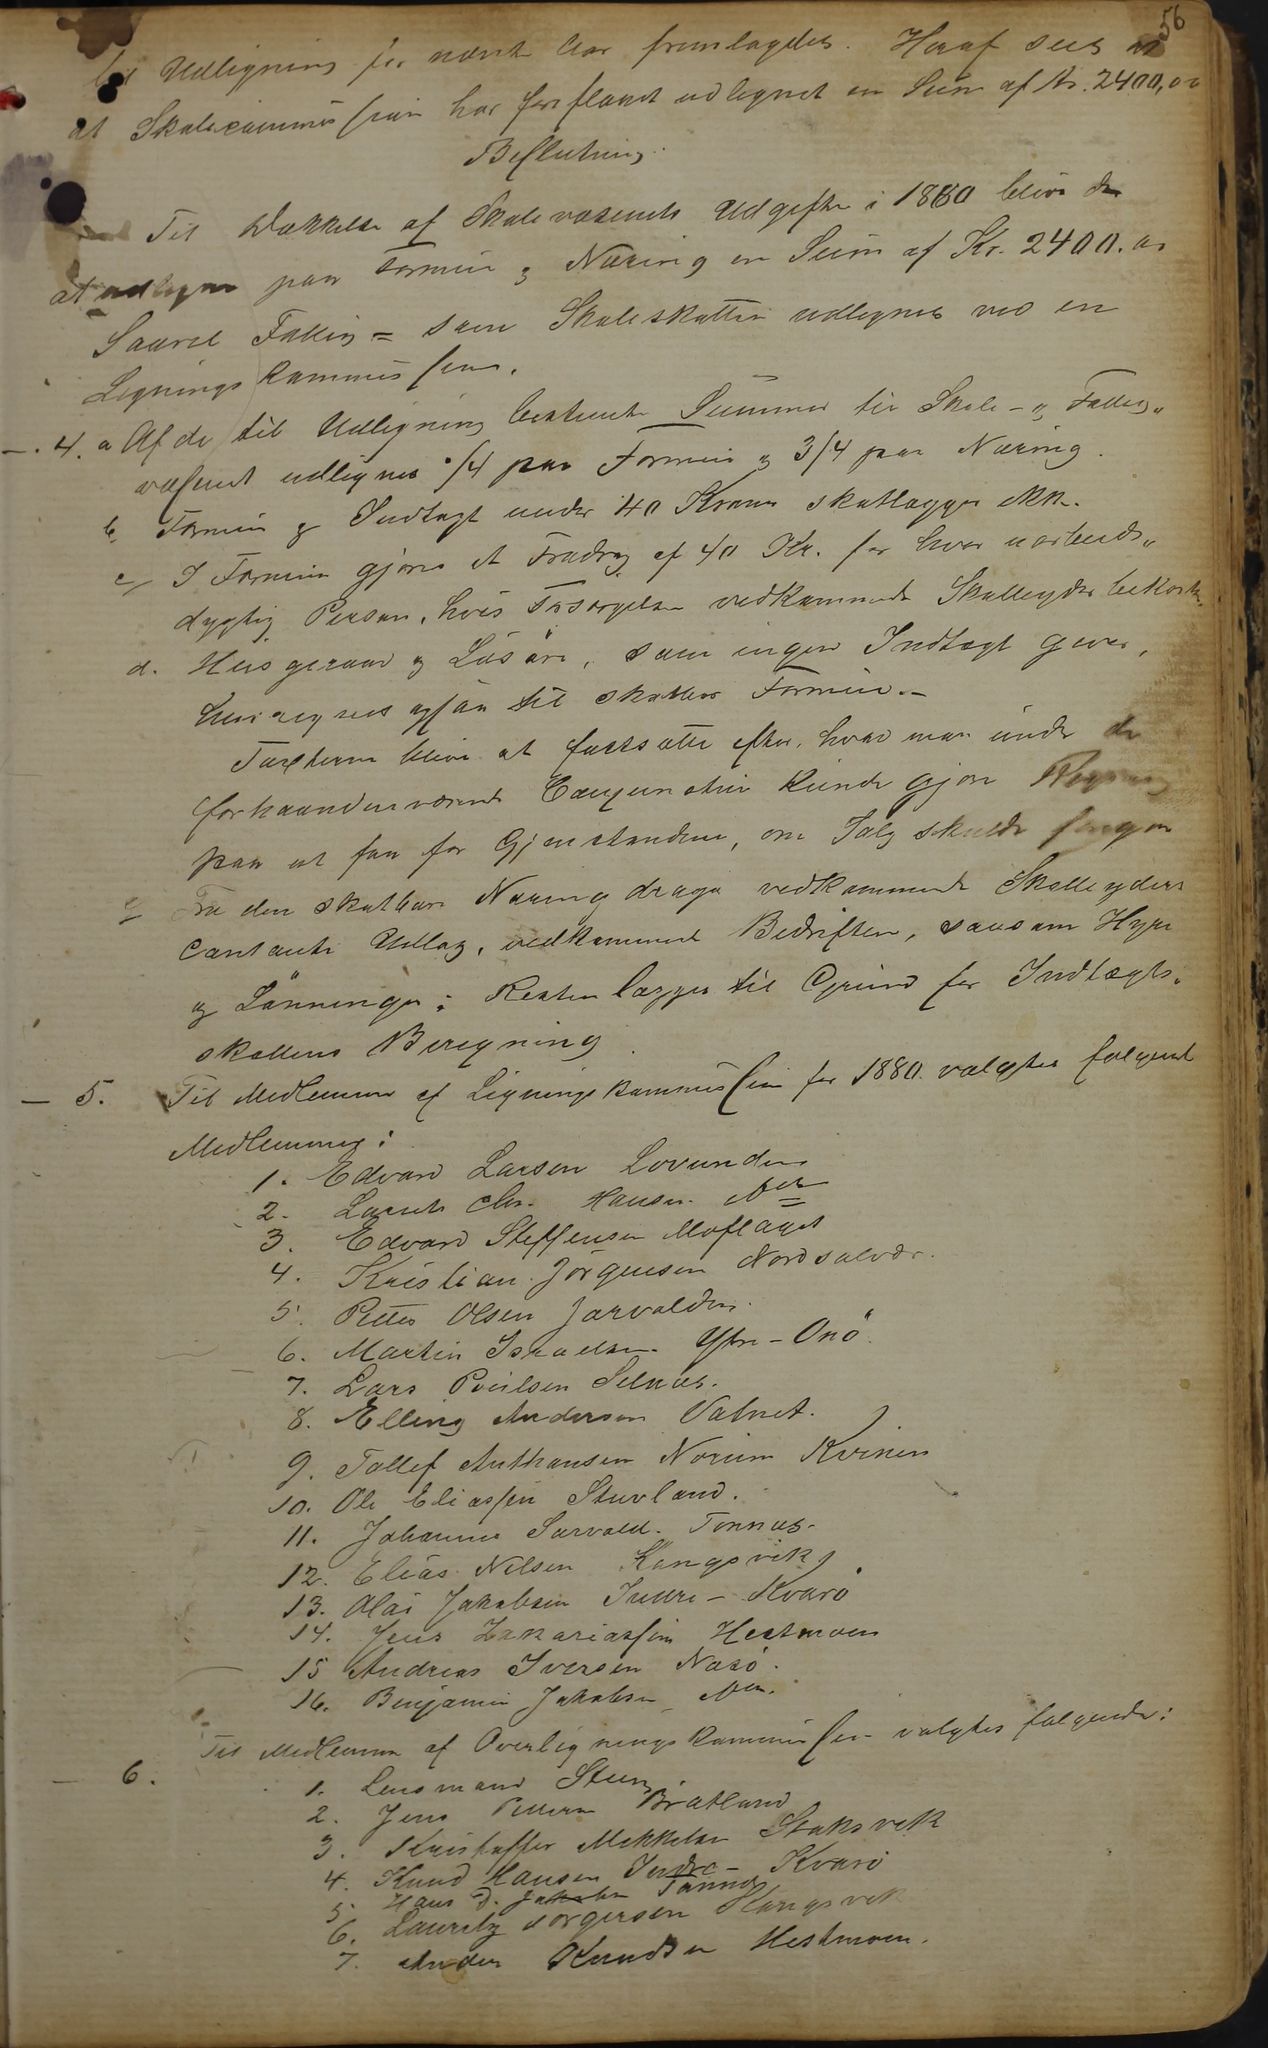 56
til Udligning for næste Aar fremlagdes. Heraf sees at
at Skolecommissionen har foreslaaet udlignet en Sum af Kr. 2400,00
Beslutning:
Til Dækkelse af Skolevæsenets Udgifter i 1880 bliver der
at udligne paa Formue & Næring en Sum af Kr. 2400.00
Saavel Fattig = som Skoleskatten udlignes ved en
Lignings Kommission.
4. a Af de til Udligning bestemte Summer til Skole- og Fattig-
væsenet udlignes 1/4 paa Formue & 3/4 paa Næring.
b. Formue & Indtægt under 40 Kroner skatlægges ikke.
c/ I Formuen gjøres et Fradrag af 40 Kr. for hver uarbeids-
dygtig Person, hvis Forsørgelse vedkommende Skatteyder bekoster.
d. Husgeraad & Løsøre, som ingen Indtægt giver,
henregnes ogsaa til skatbar Formue.-
Taxterne bliver at fastsætte efter, hvad man under de
forhaandenværende Conjuncturer kunde gjøre Regning
paa at faa for Gjenstandene, om Salg skulde foregaa
e/ Fra den skatbare Næring drages vedkommende Skatteyders
contante Udlæg, vedkommende Bedriften, saasom Hyre
og Lønninger; Resten lægges til Grund for Indtægts-
skattens Beregning.
5. Til Medlemmer af Ligningskommissionen for 1880 valgtes følgende
Medlemmer:
1. Edvard Larsen Lovunden
2. Lorents Chr. Hansen
3. Edvard Steffensen Moflaget
4. Kristian Jørgensen Nordsolvær.
5. Petter Olsen
6. Martin Israelsen Ytre-Onø
7. Lars Poulsen Selnæs.
8. Elling Andersen Vatnet.
9. Tollef Anthonsen Norum Kvinen
10. Ole Eliassen Stuvland.
11. Johannes Sarvold. Tonnæs.
12. Elias Nilsen Kongsvik
13. Olai Jakobsen Indre-Kvarø
14. Jens Zakariassen Hestmoen
15 Andreas Iversen Nesø.
16. Benjamin Jakobsen
6. Til Medlemmer af Overligningskommissionen valgtes følgende:
1. Lensmand Steen
2. Jens Pettersen Bratland
3. Kristoffer Mikkelsen Stoksvik
4. Knud Hansen Indre-Kvarø
5. Hans D. Jakobsen Tonnæs
6. Lauritz Jørgensen Kongsvik
7. Anders Knudsen Hestmoen.